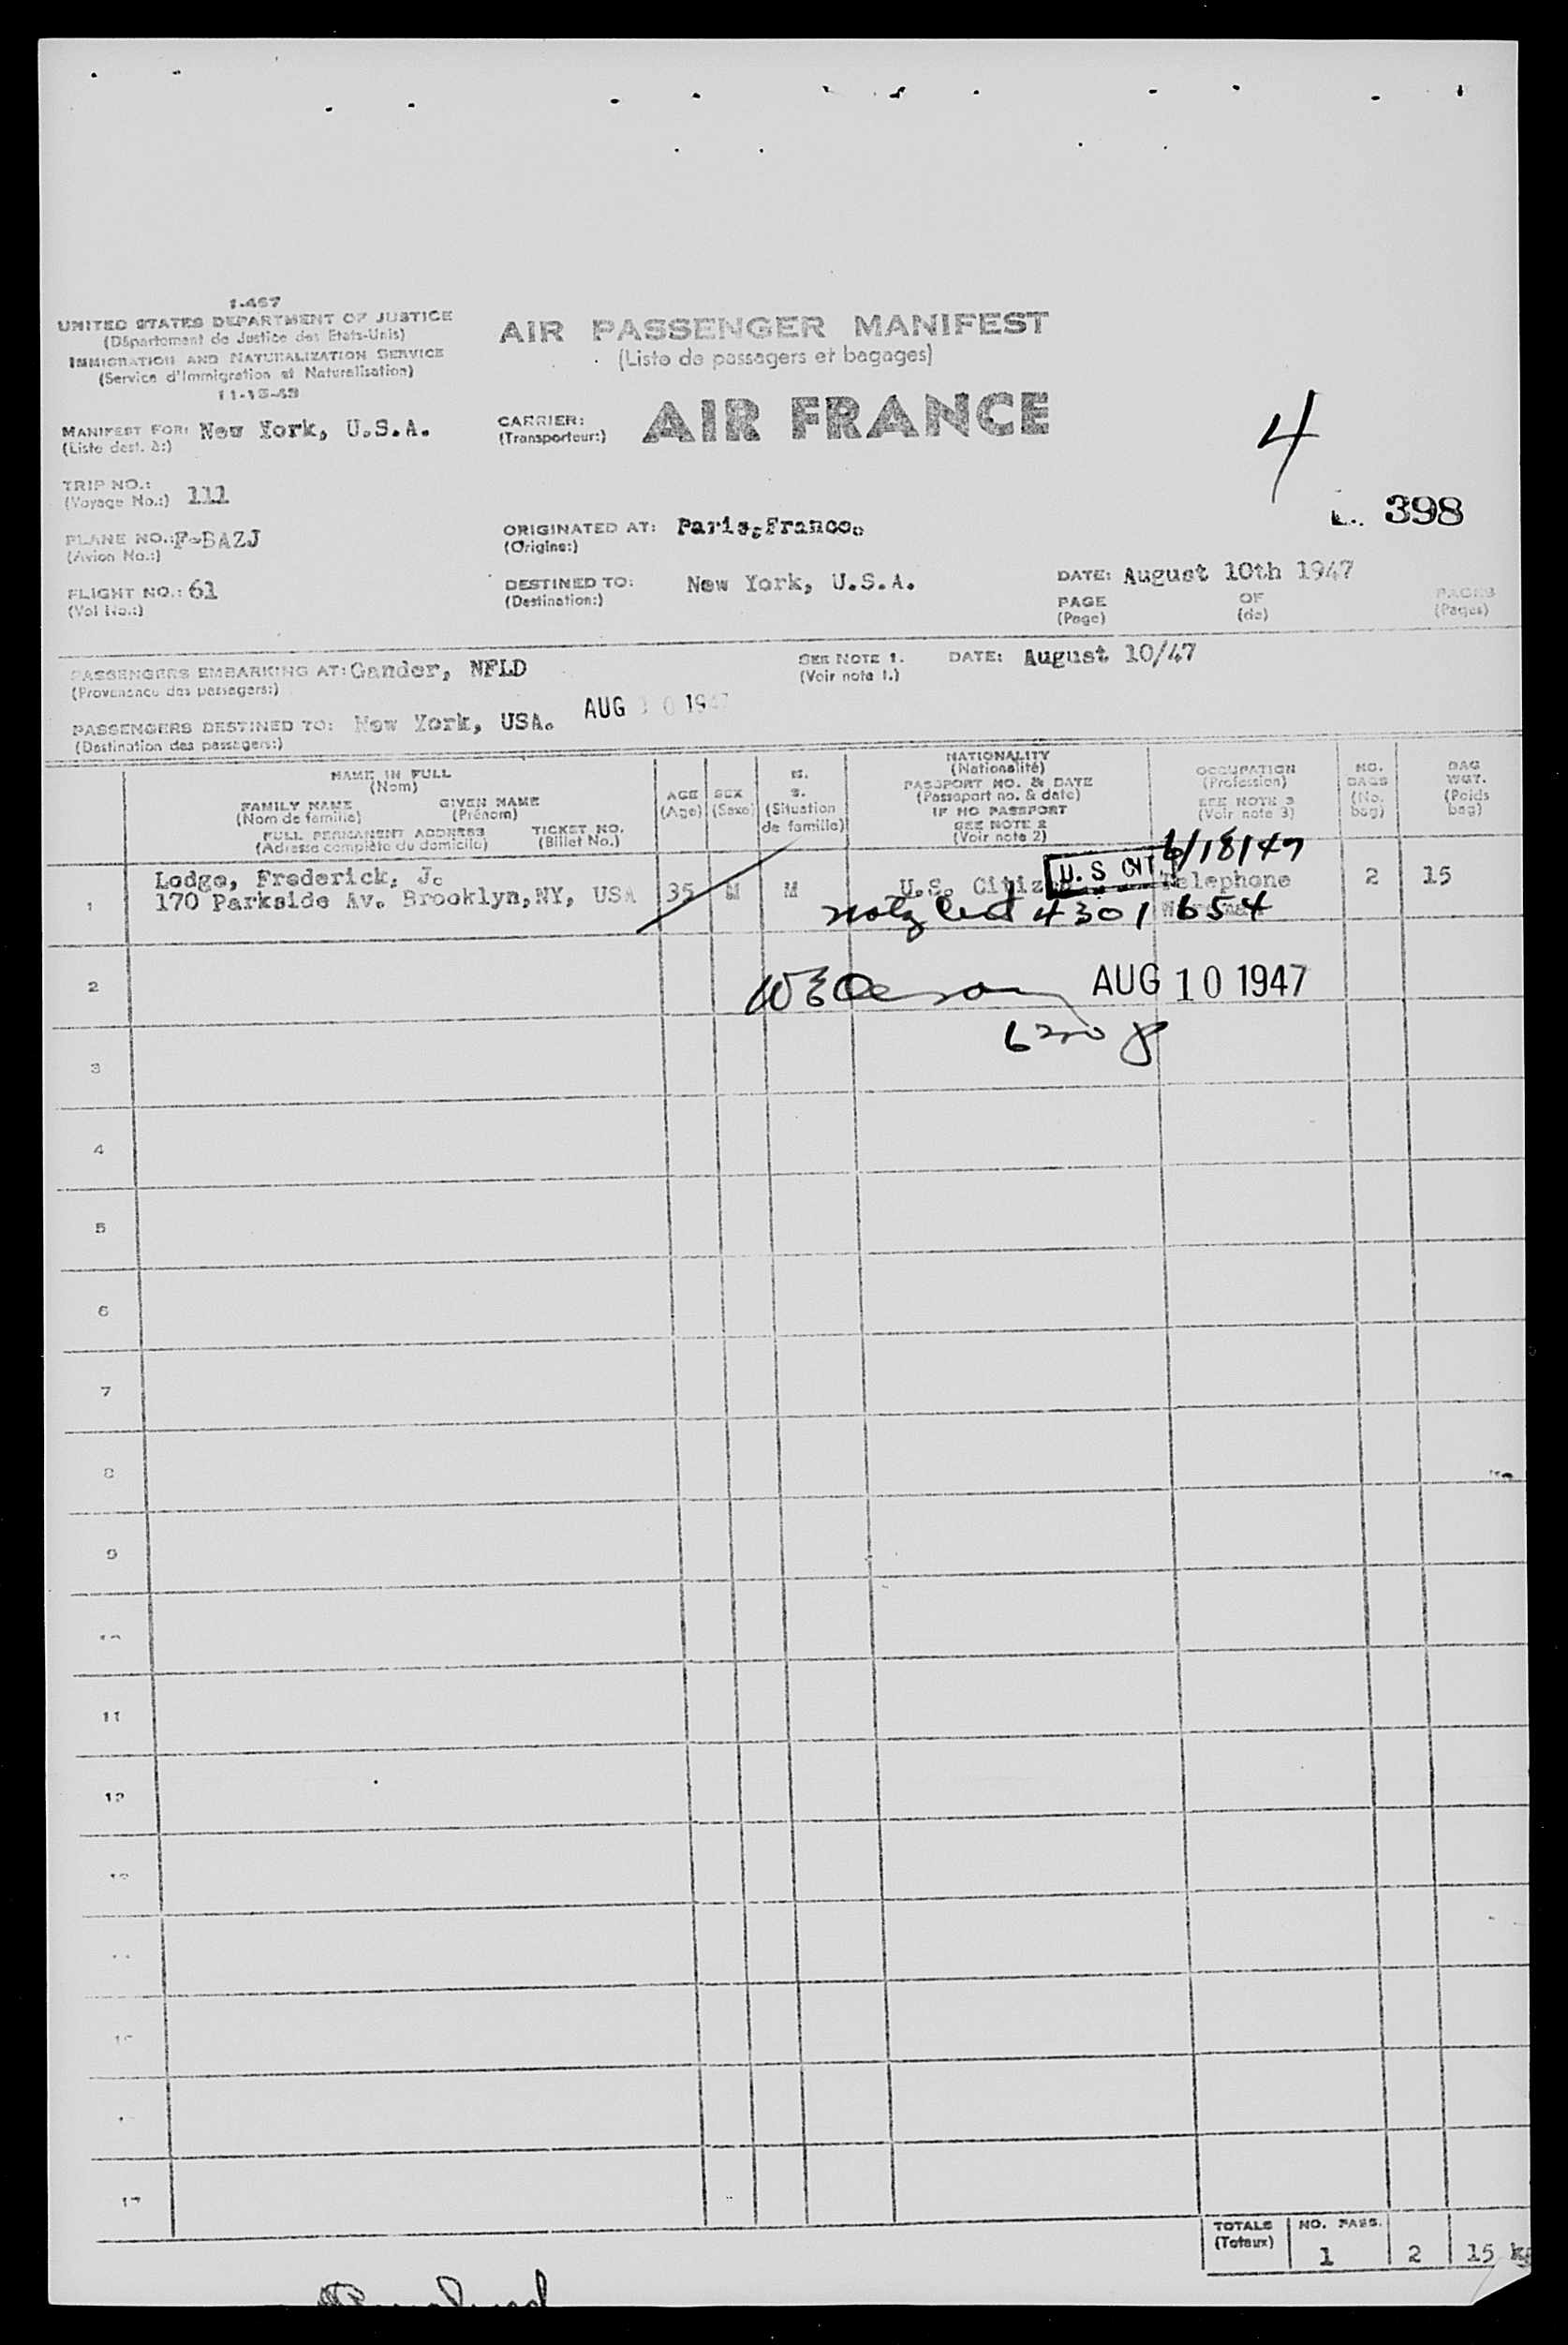 1-467
UNITED STATES DEPARTMENT OF JUSTICE
(Département de Justice des Etats-Unis)
IMMIGRATION AND NATURALIZATION SERVICE
(Service d'Immigration et Naturalisation)
11-15-43
AIR PASSENGER MANIFEST
(Liste de passagers et bagages)
MANIFEST FOR: New York, U.S.A.
(Liste dest. à:)
CARRIER: AIR FRANCE
(Transporteur:)
4
TRIP NO.: 111
(Voyage No.:)
398
PLANE NO.: F-BAZJ
(Avion No.:)
ORIGINATED AT: Paris,France.
(Origine:)
FLIGHT NO.: 61
(Vol No.:)
DESTINED TO: New York, U.S.A.
(Destination:)
DATE: August 10th 1947
PAGE OF PAGES
(Page) (de) (Pages)
PASSENGERS EMBARKING AT: Gander, NFLD
(Provenance des passagers:)
SEE NOTE 1. DATE: August 10/47
(Voir note 1.)
AUG 10 1947
PASSENGERS DESTINED TO: New York, USA.
(Destination des passagers:)
NAME IN FULL
(Nom)
FAMILY NAME GIVEN NAME
(Nom de famille) (Prénom)
FULL PERMANENT ADDRESS TICKET NO.
(Adresse complète du domicile) (Billet No.)
AGE
(Age)
SEX
(Sexe)
M.
S.
(Situation
de famille)
NATIONALITY
(Nationalité)
PASSPORT NO. & DATE
(Passeport no. & date)
IF NO PASSPORT
SEE NOTE 2
(Voir note 2)
OCCUPATION
(Profession)
SEE NOTE 3
(Voir note 3)
NO.
BAGS
(No.
bag)
BAG
WGT.
(Poids
bag)
6/18/47
1 Lodge, Frederick, J. 35 M M U.S. Citizen U.S CIT Telephone 2 15
170 Parkside Av. Brooklyn,NY, USA
4301654
2
AUG 10 1947
3
4
5
6
7
8
9
10
11
12
17
TOTALS NO. PASS.
(Totaux) 1 2 15 kg